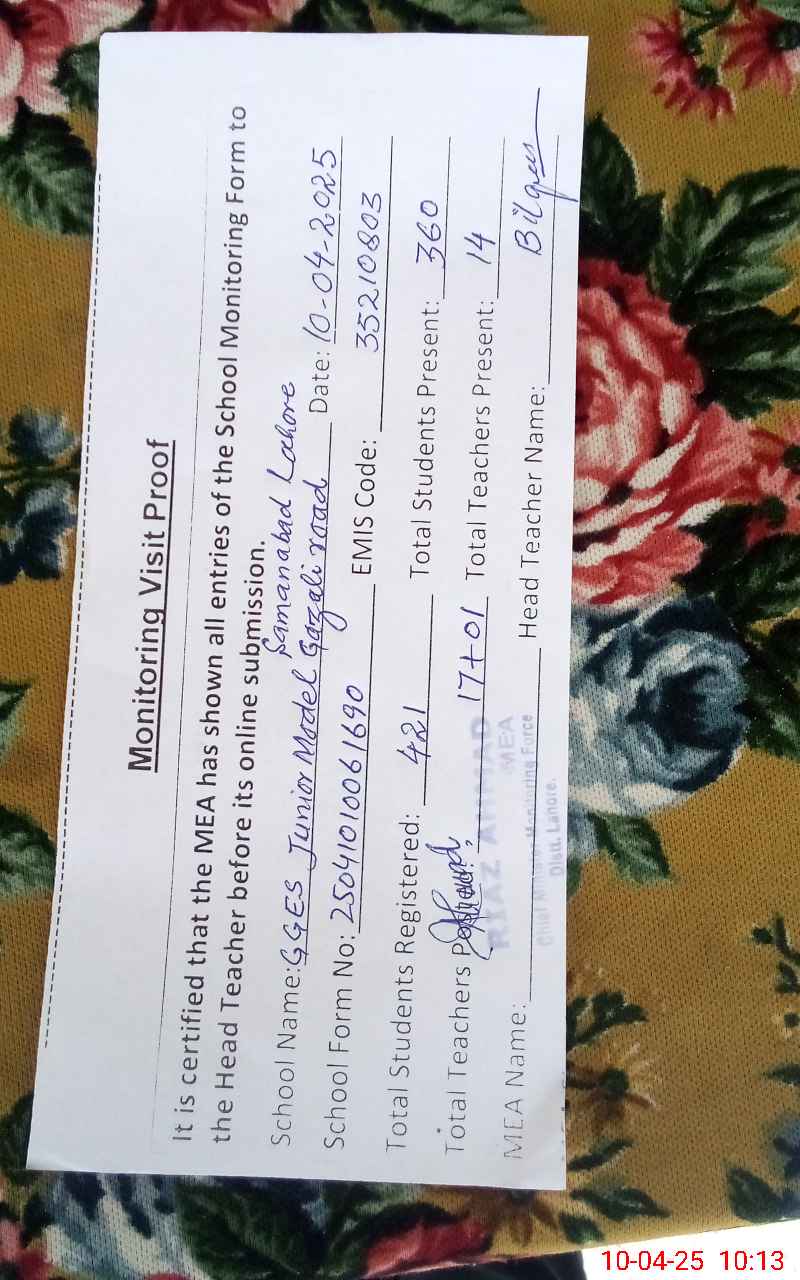 Monitoring Visit Proof
It is certified that the MEA has shown all entries of the School Monitoring Form to
the Head Teacher before its online submission.
Samanabad Lahore
School Name: GGES Junior Model Gazali road Date: 10-04-2025
School Form No: 25041010061690 EMIS Code: 35210803
Total Students Registered: 421 Total Students Present: 360
Total Teachers 17+01 Total Teachers Present: 14
RIAZ AHMAD
MEA
MEA Name: Head Teacher Name: Bilqees
Chief Minister Monitoring Force
Distt. Lahore.
10-04-25 10:13